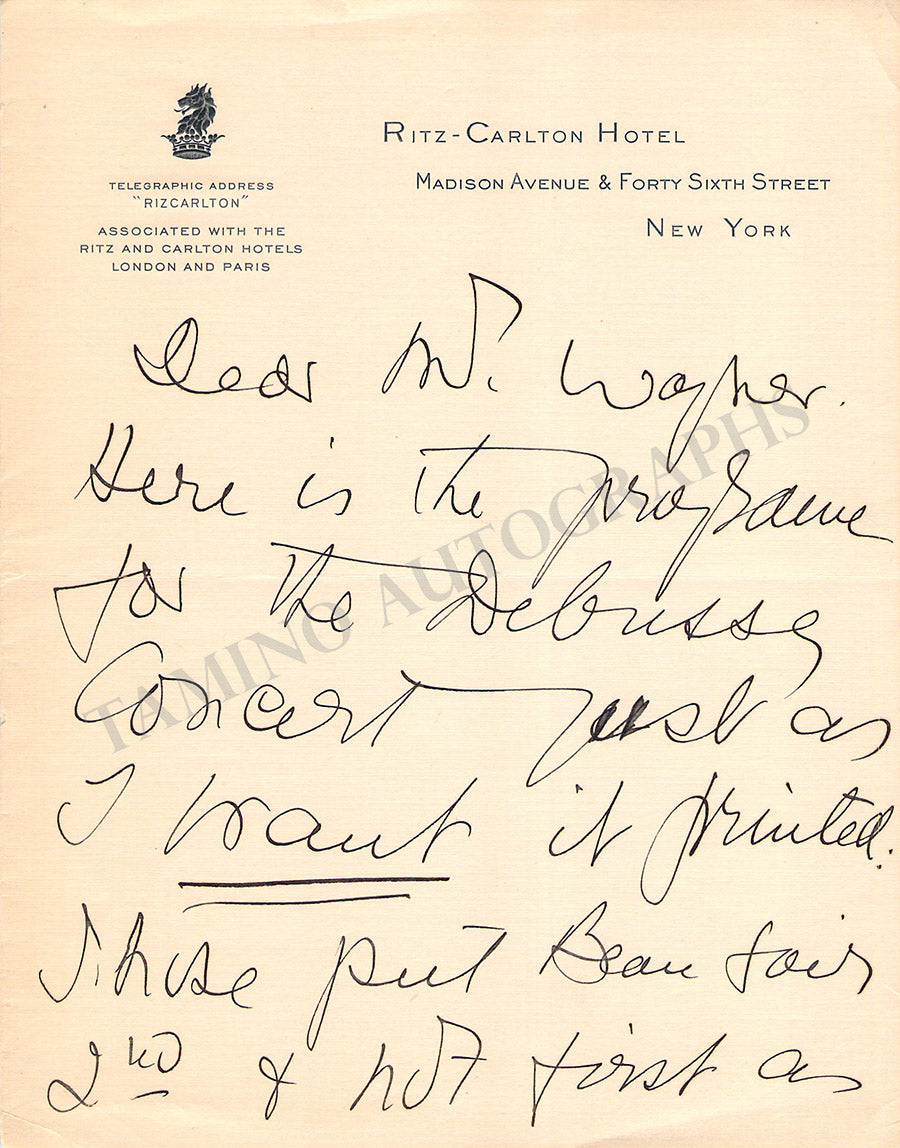 RITZ-CARLTON HOTEL
MADISON AVENUE & FORTY SIXTH STREET
NEW YORK
TELEGRAPHIC ADDRESS
"RIZCARLTON"
ASSOCIATED WITH THE
RITZ AND CARLTON HOTELS
LONDON AND PARIS
Dear Mr. Wagner.
Here is the programe
for the Debussy
Concert just as
I want it printed.
I have put Beau Soir
2nd & not first as
TAMINO AUTOGRAPHS